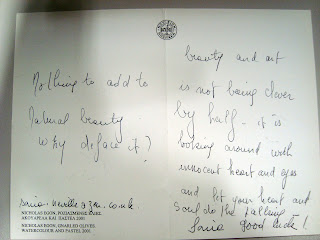 Nothing to add to
natural beauty
why deface it?
NICHOLAS EGON,
NICHOLAS EGON, GNARLED OLIVES
WATERCOLOUR AND PASTEL 2001.
beauty and art
is not being clever
by half - it is
looking around with
innocent heart and eyes
and let your heart and
soul do the talking -
good luck!